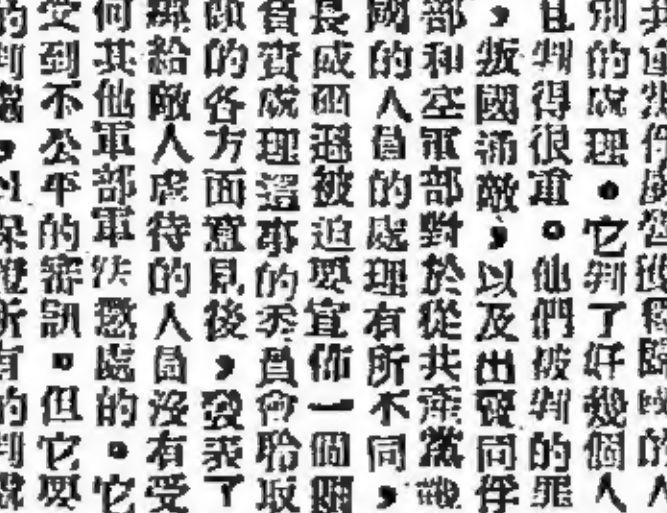 別的處理。它判了好幾個人
且判得很重。他們被判的罪
，叛國通敵，以及出賣同伴
部和空軍部對於從共產黨戰
國的人員的處理有所不同，
長成西遜被迫要宣佈一個關
負責處理這事的委員會聆取
顧的各方面意見後，發表了
綁給敵人虐待的人員沒有受
何其他軍部軍法懲處的。它
受到不公平的審訊。但它要